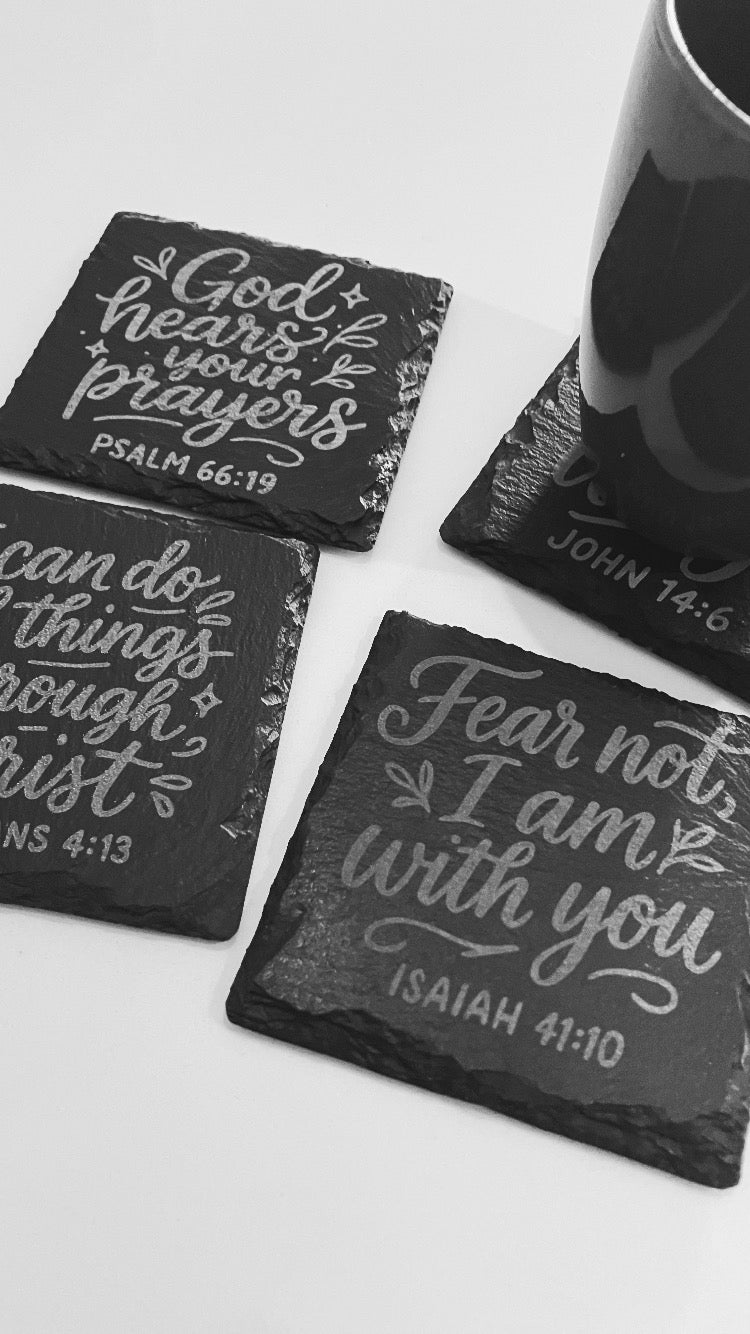 God
hears
your
prayers
PSALM 66:19
can do
things
rough
rist
ONS 4:13
JOHN 14:6
Fear not,
I am
with you
ISAIAH 41:10